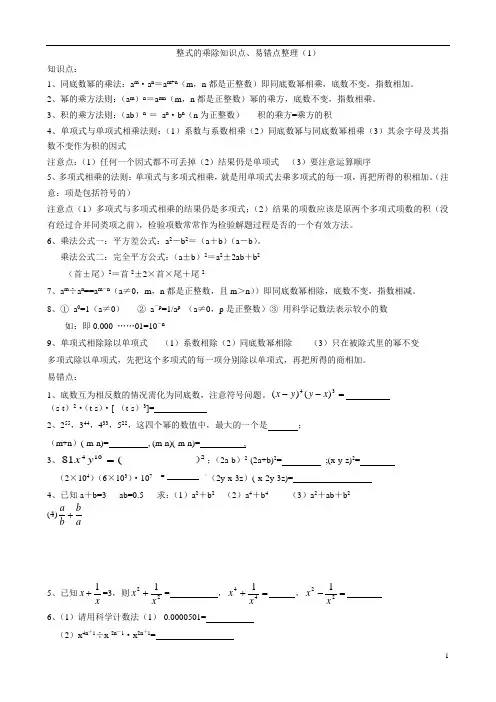 整式的乘除知识点、易错点整理（1）
知识点：
1、同底数幂的乘法：aᵐ·aⁿ＝aᵐ⁺ⁿ（m，n 都是正整数）即同底数幂相乘，底数不变，指数相加。
2、幂的乘方法则：（aᵐ）ⁿ＝aᵐⁿ（m，n 都是正整数）幂的乘方，底数不变，指数相乘。
3、积的乘方法则：（ab）ⁿ ＝ aⁿ·bⁿ（n 为正整数） 积的乘方=乘方的积
4、单项式与单项式相乘法则：（1）系数与系数相乘（2）同底数幂与同底数幂相乘（3）其余字母及其指
数不变作为积的因式
注意点：（1）任何一个因式都不可丢掉（2）结果仍是单项式 （3）要注意运算顺序
5、多项式相乘的法则：单项式与多项式相乘，就是用单项式去乘多项式的每一项，再把所得的积相加。（注
意：项是包括符号的）
注意点（1）多项式与多项式相乘的结果仍是多项式；（2）结果的项数应该是原两个多项式项数的积（没
有经过合并同类项之前），检验项数常常作为检验解题过程是否的一个有效方法。
6、乘法公式一：平方差公式：a²－b²＝（a＋b）（a－b）。
乘法公式二：完全平方公式：（a±b）²＝a²±2ab＋b²
（首±尾）²＝首²±2×首×尾＋尾²
7、aᵐ÷aⁿ==aᵐ⁻ⁿ（a≠0，m，n 都是正整数，且 m＞n））即同底数幂相除，底数不变，指数相减。
8、① a⁰=1（a≠0） ② a⁻ᵖ=1/aᵖ （a≠0，p 是正整数）③ 用科学记数法表示较小的数
如：即 0.000 ……01=10⁻ⁿ
9、单项式相除除以单项式 （1）系数相除（2）同底数幂相除 （3）只在被除式里的幂不变
多项式除以单项式，先把这个多项式的每一项分别除以单项式，再把所得的商相加。
易错点：
1、底数互为相反数的情况需化为同底数，注意符号问题。(x－y)⁴(y－x)³＝
（s-t）²·（t-s）·[-（t-s）³]=
2、2⁵⁵，3⁴⁴，4³³，5²²，这四个幂的数值中，最大的一个是 ；
（m+n）(-m-n)= , (m-n)(-m-n)= .
3、81x⁴y¹⁰＝( )²；（2a-b）²-(2a+b)²= ;(x-y-z)²=
（2×10⁴）（6×10³）·10⁷ = （2y-x-3z）(-x-2y-3z)=
4、已知 a＋b=3 ab=0.5 求：（1）a²＋b² （2）a⁴＋b⁴ （3）a²＋ab＋b²
(4) a/b＋b/a
5、已知 x＋1/x=3，则 x²＋1/x²= ，x⁴＋1/x⁴＝ ，x²－1/x²＝
6、（1）请用科学计数法（1）-0.0000501=
（2）x⁴ⁿ⁺¹÷x²ⁿ⁻¹·x²ⁿ⁺¹=
1